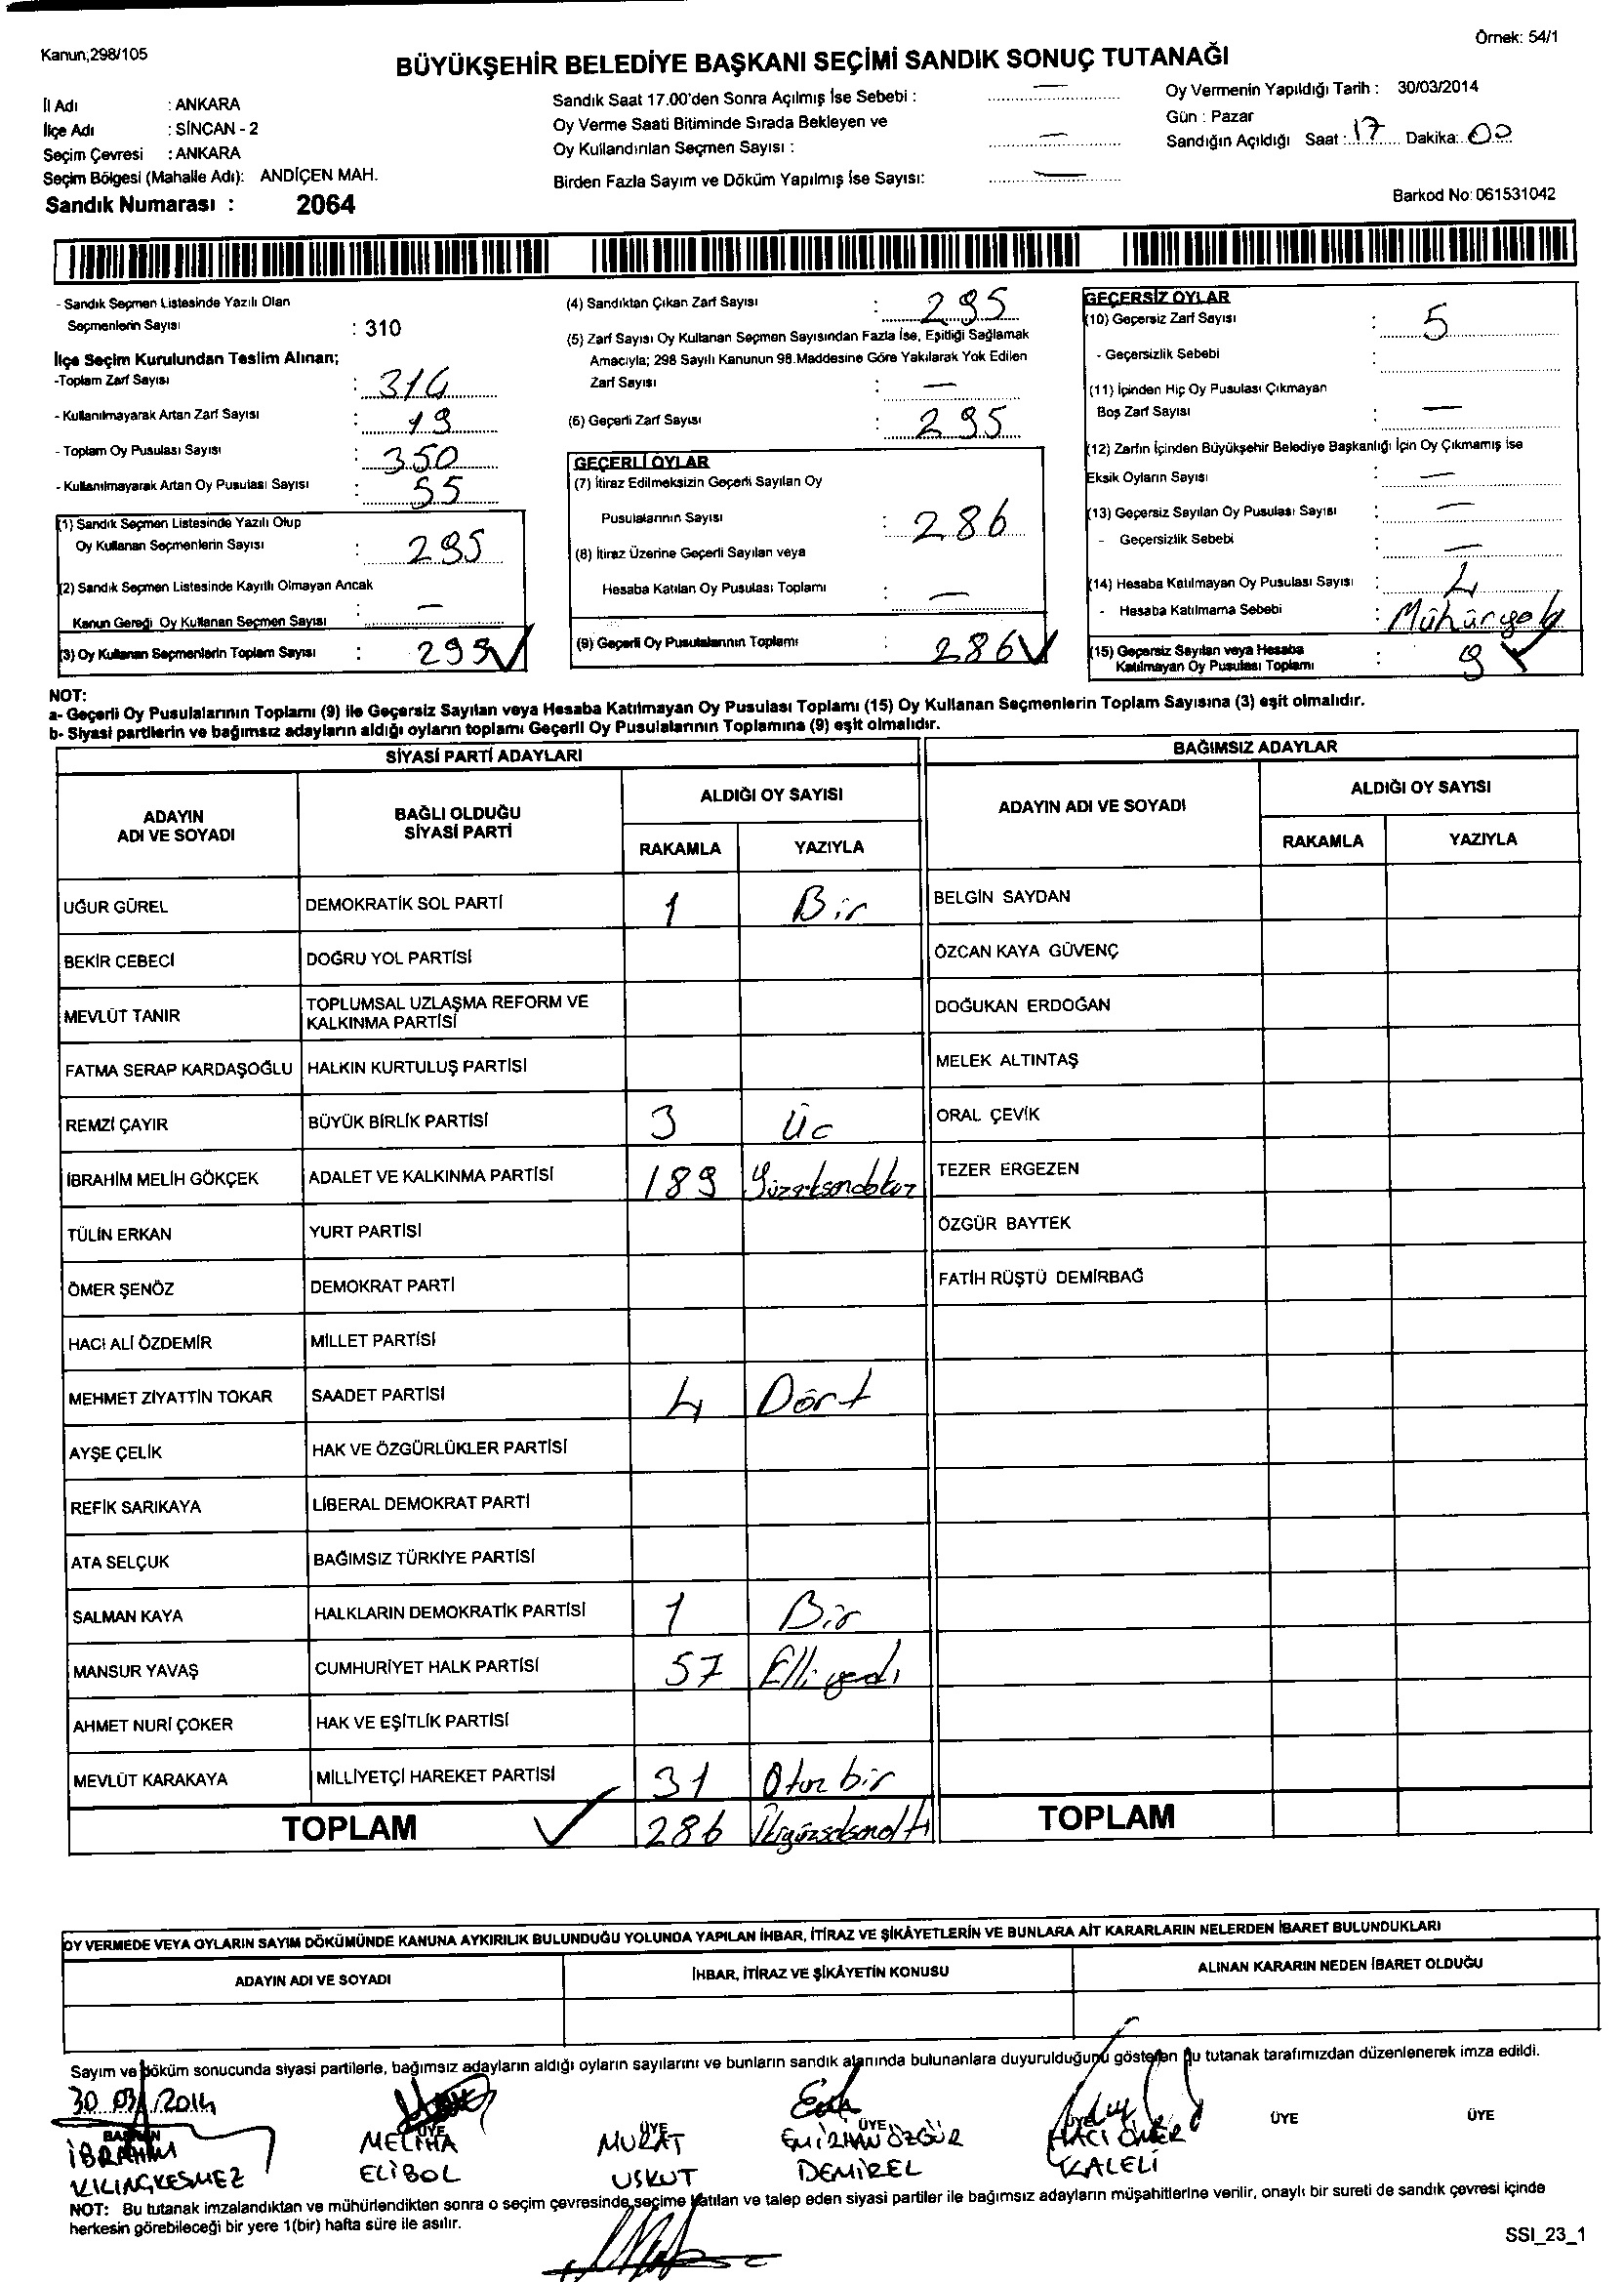 Kanun;298/105
Örnek: 54/1
BÜYÜKŞEHİR BELEDİYE BAŞKANI SEÇİMİ SANDIK SONUÇ TUTANAĞI
İl Adı : ANKARA
İlçe Adı : SİNCAN - 2
Seçim Çevresi : ANKARA
Seçim Bölgesi (Mahalle Adı): ANDİÇEN MAH.
Sandık Numarası : 2064
Sandık Saat 17.00'den Sonra Açılmış İse Sebebi : —
Oy Verme Saati Bitiminde Sırada Bekleyen ve
Oy Kullandırılan Seçmen Sayısı : —
Birden Fazla Sayım ve Döküm Yapılmış İse Sayısı: —
Oy Vermenin Yapıldığı Tarih : 30/03/2014
Gün : Pazar
Sandığın Açıldığı Saat : 17 Dakika: 00
Barkod No: 061531042
- Sandık Seçmen Listesinde Yazılı Olan
Seçmenlerin Sayısı : 310
İlçe Seçim Kurulundan Teslim Alınan;
-Toplam Zarf Sayısı : 314
- Kullanılmayarak Artan Zarf Sayısı : 19
- Toplam Oy Pusulası Sayısı : 350
- Kullanılmayarak Artan Oy Pusulası Sayısı : 55
(1) Sandık Seçmen Listesinde Yazılı Olup
Oy Kullanan Seçmenlerin Sayısı : 295
(2) Sandık Seçmen Listesinde Kayıtlı Olmayan Ancak
Kanun Gereği Oy Kullanan Seçmen Sayısı : —
(3) Oy Kullanan Seçmenlerin Toplam Sayısı : 295 ✓
(4) Sandıktan Çıkan Zarf Sayısı : 295
(5) Zarf Sayısı Oy Kullanan Seçmen Sayısından Fazla İse, Eşitliği Sağlamak
Amacıyla; 298 Sayılı Kanunun 98.Maddesine Göre Yakılarak Yok Edilen
Zarf Sayısı : —
(6) Geçerli Zarf Sayısı : 295
GEÇERLİ OYLAR
(7) İtiraz Edilmeksizin Geçerli Sayılan Oy
Pusulalarının Sayısı : 286
(8) İtiraz Üzerine Geçerli Sayılan veya
Hesaba Katılan Oy Pusulası Toplamı : —
(9) Geçerli Oy Pusulalarının Toplamı : 286 ✓
GEÇERSİZ OYLAR
(10) Geçersiz Zarf Sayısı : 5
- Geçersizlik Sebebi :
(11) İçinden Hiç Oy Pusulası Çıkmayan
Boş Zarf Sayısı : —
(12) Zarfın İçinden Büyükşehir Belediye Başkanlığı İçin Oy Çıkmamış ise
Eksik Oyların Sayısı : —
(13) Geçersiz Sayılan Oy Pusulası Sayısı : —
- Geçersizlik Sebebi : —
(14) Hesaba Katılmayan Oy Pusulası Sayısı : 4
- Hesaba Katılmama Sebebi : Mühür yok
(15) Geçersiz Sayılan veya Hesaba
Katılmayan Oy Pusulası Toplamı : 9 ✓
NOT:
a- Geçerli Oy Pusulalarının Toplamı (9) ile Geçersiz Sayılan veya Hesaba Katılmayan Oy Pusulası Toplamı (15) Oy Kullanan Seçmenlerin Toplam Sayısına (3) eşit olmalıdır.
b- Siyasi partilerin ve bağımsız adayların aldığı oyların toplamı Geçerli Oy Pusulalarının Toplamına (9) eşit olmalıdır.
SİYASİ PARTİ ADAYLARI
ADAYIN ADI VE SOYADI BAĞLI OLDUĞU SİYASİ PARTİ ALDIĞI OY SAYISI
RAKAMLA YAZIYLA
UĞUR GÜREL DEMOKRATİK SOL PARTİ 1 Bir
BEKİR CEBECİ DOĞRU YOL PARTİSİ
MEVLÜT TANIR TOPLUMSAL UZLAŞMA REFORM VE KALKINMA PARTİSİ
FATMA SERAP KARDAŞOĞLU HALKIN KURTULUŞ PARTİSİ
REMZİ ÇAYIR BÜYÜK BİRLİK PARTİSİ 3 Üc
İBRAHİM MELİH GÖKÇEK ADALET VE KALKINMA PARTİSİ 189 Yüzseksendokuz
TÜLİN ERKAN YURT PARTİSİ
ÖMER ŞENÖZ DEMOKRAT PARTİ
HACI ALİ ÖZDEMİR MİLLET PARTİSİ
MEHMET ZİYATTİN TOKAR SAADET PARTİSİ 4 Dört
AYŞE ÇELİK HAK VE ÖZGÜRLÜKLER PARTİSİ
REFİK SARIKAYA LİBERAL DEMOKRAT PARTİ
ATA SELÇUK BAĞIMSIZ TÜRKİYE PARTİSİ
SALMAN KAYA HALKLARIN DEMOKRATİK PARTİSİ 1 Bir
MANSUR YAVAŞ CUMHURİYET HALK PARTİSİ 57 Elli yedi
AHMET NURİ ÇOKER HAK VE EŞİTLİK PARTİSİ
MEVLÜT KARAKAYA MİLLİYETÇİ HAREKET PARTİSİ 31 Otuz bir
TOPLAM ✓ 286 İkiyüzseksenaltı
BAĞIMSIZ ADAYLAR
ADAYIN ADI VE SOYADI ALDIĞI OY SAYISI
RAKAMLA YAZIYLA
BELGİN SAYDAN
ÖZCAN KAYA GÜVENÇ
DOĞUKAN ERDOĞAN
MELEK ALTINTAŞ
ORAL ÇEVİK
TEZER ERGEZEN
ÖZGÜR BAYTEK
FATİH RÜŞTÜ DEMİRBAĞ
TOPLAM
OY VERMEDE VEYA OYLARIN SAYIM DÖKÜMÜNDE KANUNA AYKIRILIK BULUNDUĞU YOLUNDA YAPILAN İHBAR, İTİRAZ VE ŞİKÂYETLERİN VE BUNLARA AİT KARARLARIN NELERDEN İBARET BULUNDUKLARI
ADAYIN ADI VE SOYADI İHBAR, İTİRAZ VE ŞİKÂYETİN KONUSU ALINAN KARARIN NEDEN İBARET OLDUĞU
Sayım ve döküm sonucunda siyasi partilerle, bağımsız adayların aldığı oyların sayılarını ve bunların sandık alanında bulunanlara duyurulduğunu gösteren bu tutanak tarafımızdan düzenlenerek imza edildi.
30 03 / 2014
BAŞKAN ÜYE ÜYE ÜYE ÜYE ÜYE ÜYE
İBRAHİM MELİHA MURAT EMİRHAN ÖZGÜR HACI ÖMER
KILINÇKESMEZ ELİBOL USKUT DEMİREL KALELİ
NOT: Bu tutanak imzalandıktan ve mühürlendikten sonra o seçim çevresinde seçime katılan ve talep eden siyasi partiler ile bağımsız adayların müşahitlerine verilir, onaylı bir sureti de sandık çevresi içinde
herkesin görebileceği bir yere 1(bir) hafta süre ile asılır.
SSI_23_1